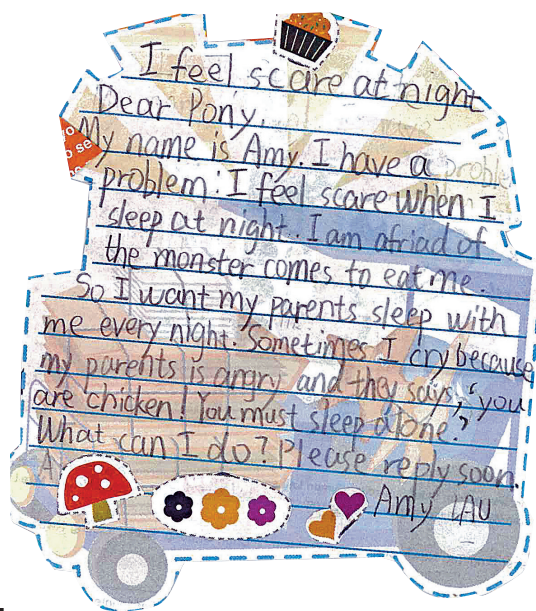 I feel scare at night
Dear Pony,
My name is Amy. I have a
problem: I feel scare when I
sleep at night. I am afriad of
the monster comes to eat me.
So I want my parents sleep with
me every night. Sometimes I cry because
my parents is angry and they says, "you
are chicken! You must sleep alone."
What can I do? Please reply soon.
Amy LAU